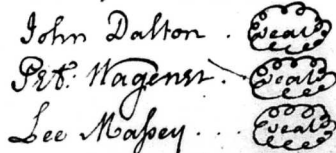 John Dalton . (Seal)
Pet. Wagener . (Seal)
Lee Massey . . . (Seal)